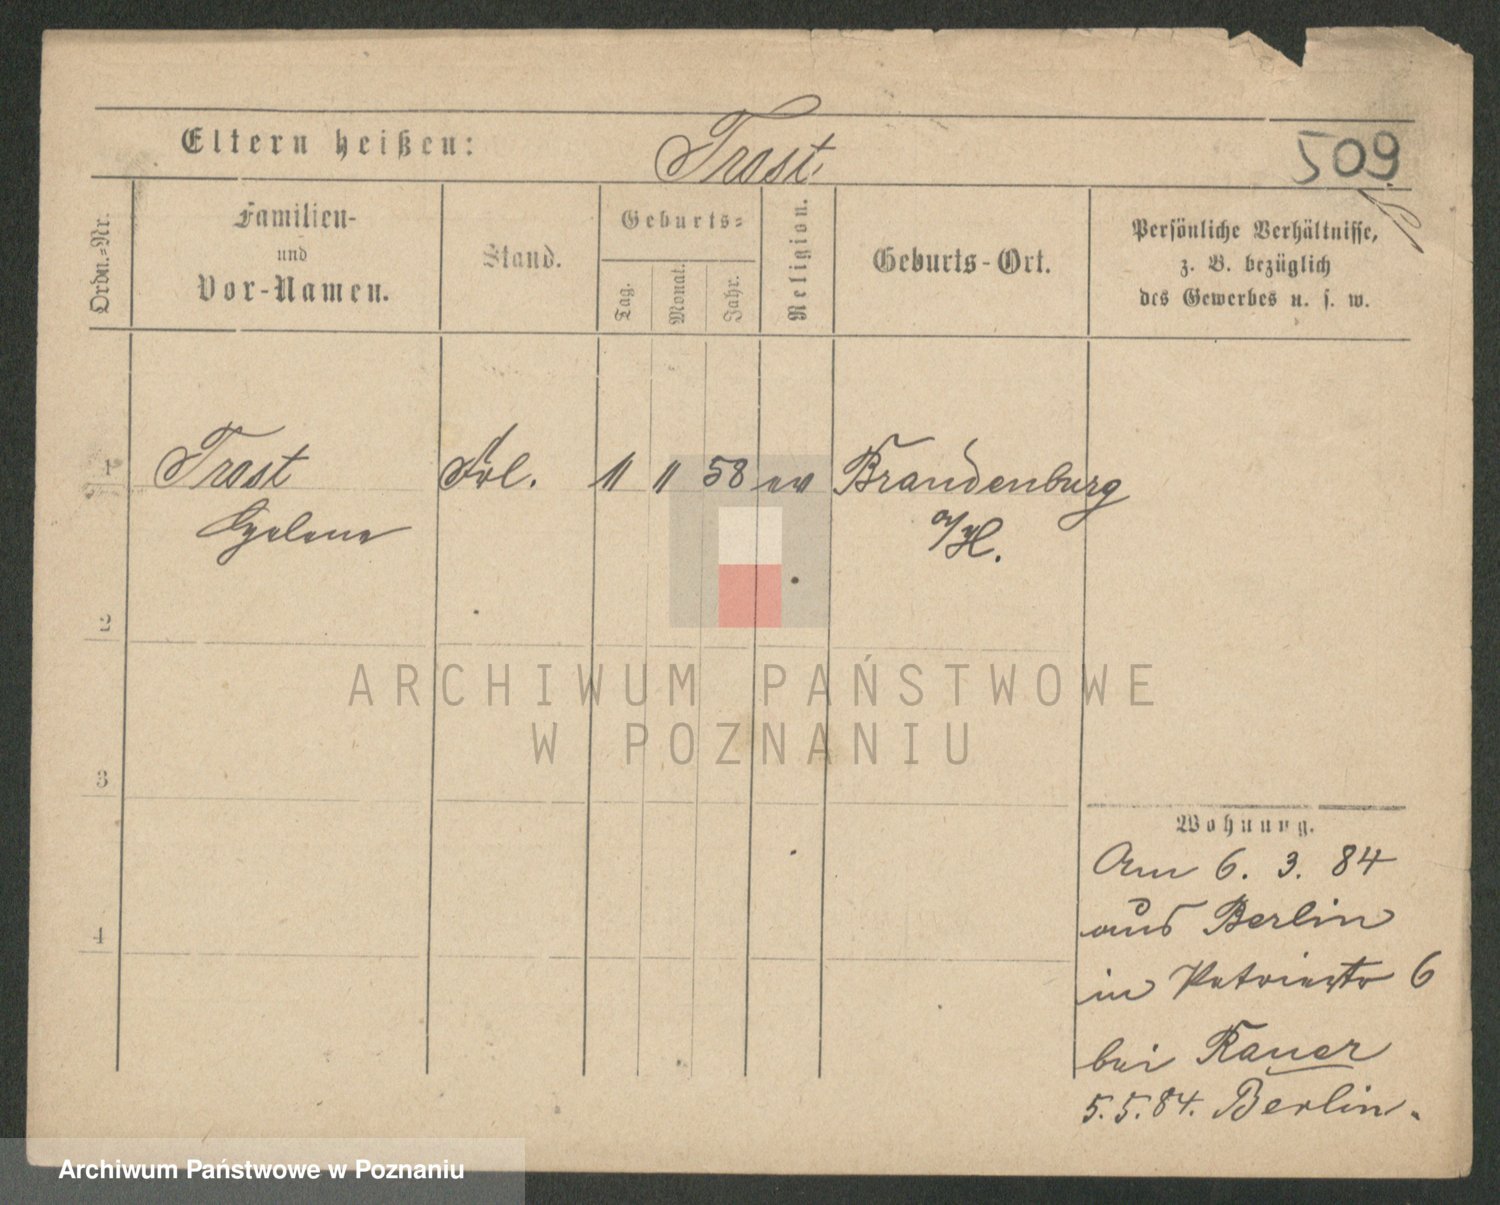 Eltern heißen: Trost
509
Ordn.-Nr.
Familien-
und
Vor-Namen.
Stand.
Geburts-
Tag.
Monat.
Jahr.
Religion.
Geburts-Ort.
Persönliche Verhältnisse,
z. B. bezüglich
des Gewerbes u. s. w.
1 Trost Frl. 11 11 58 ev Brandenburg
a/H.
2
3
4
Wohnung.
Am 6. 3. 84
aus Berlin
in 6
bei Kauer
5.5.84. Berlin.
ARCHIWUM PAŃSTWOWE
W POZNANIU
Archiwum Państwowe w Poznaniu